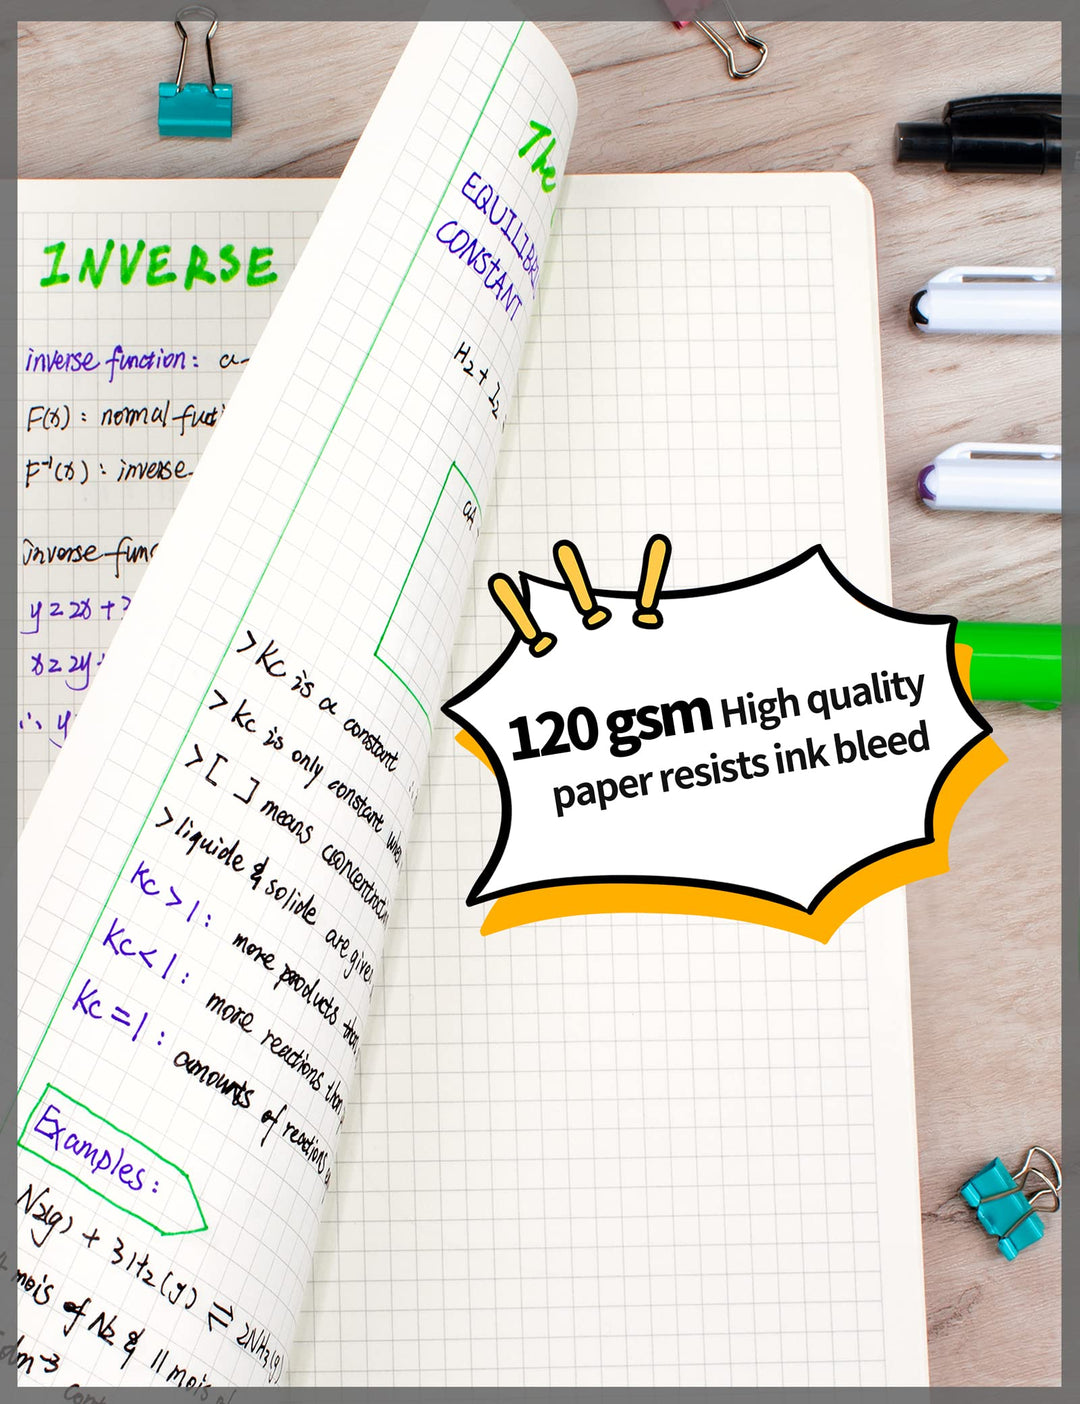 INVERSE
inverse function: a
F(x): normal
F⁻¹(x): inverse
inverse
y = 2x +
x = 2y
∴ y
The
EQUILIB
CONSTANT
H₂ + I₂
aA
> Kc is a constant
> Kc is only constant when
> [ ] means
> liquide & solide are
Kc > 1: more products than
Kc < 1: more reactions than
Kc = 1: amounts of reactions
Examples:
N₂(g) + 3H₂(g) ⇌ 2NH₃(g)
mois of N₂ & 11 mois
dm⁻³
120 gsm High quality
paper resists ink bleed